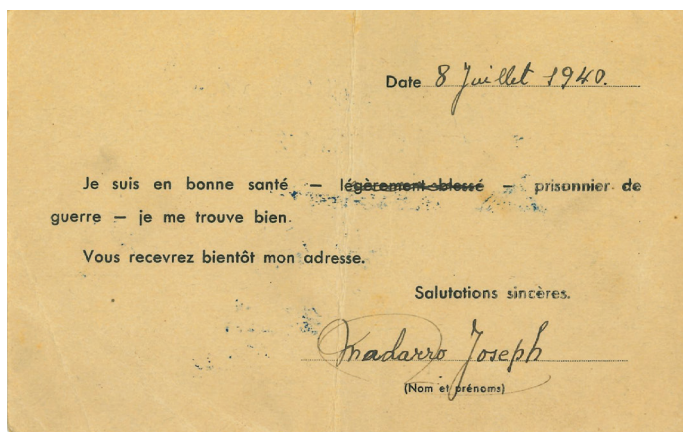 Date 8 Juillet 1940.
Je suis en bonne santé — légèrement blessé — prisonnier de
guerre — je me trouve bien.
Vous recevrez bientôt mon adresse.
Salutations sincères.
Madarro Joseph
(Nom et prénoms)